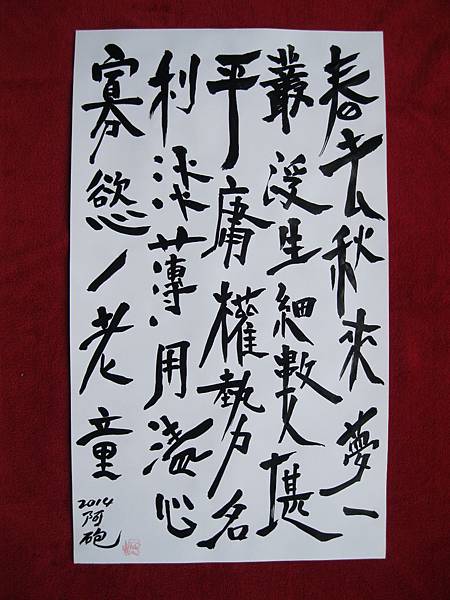 春去秋來夢一
叢浮生細數堪
平庸權勢名
利淡薄用心
寡慾一老童
2014
阿砲